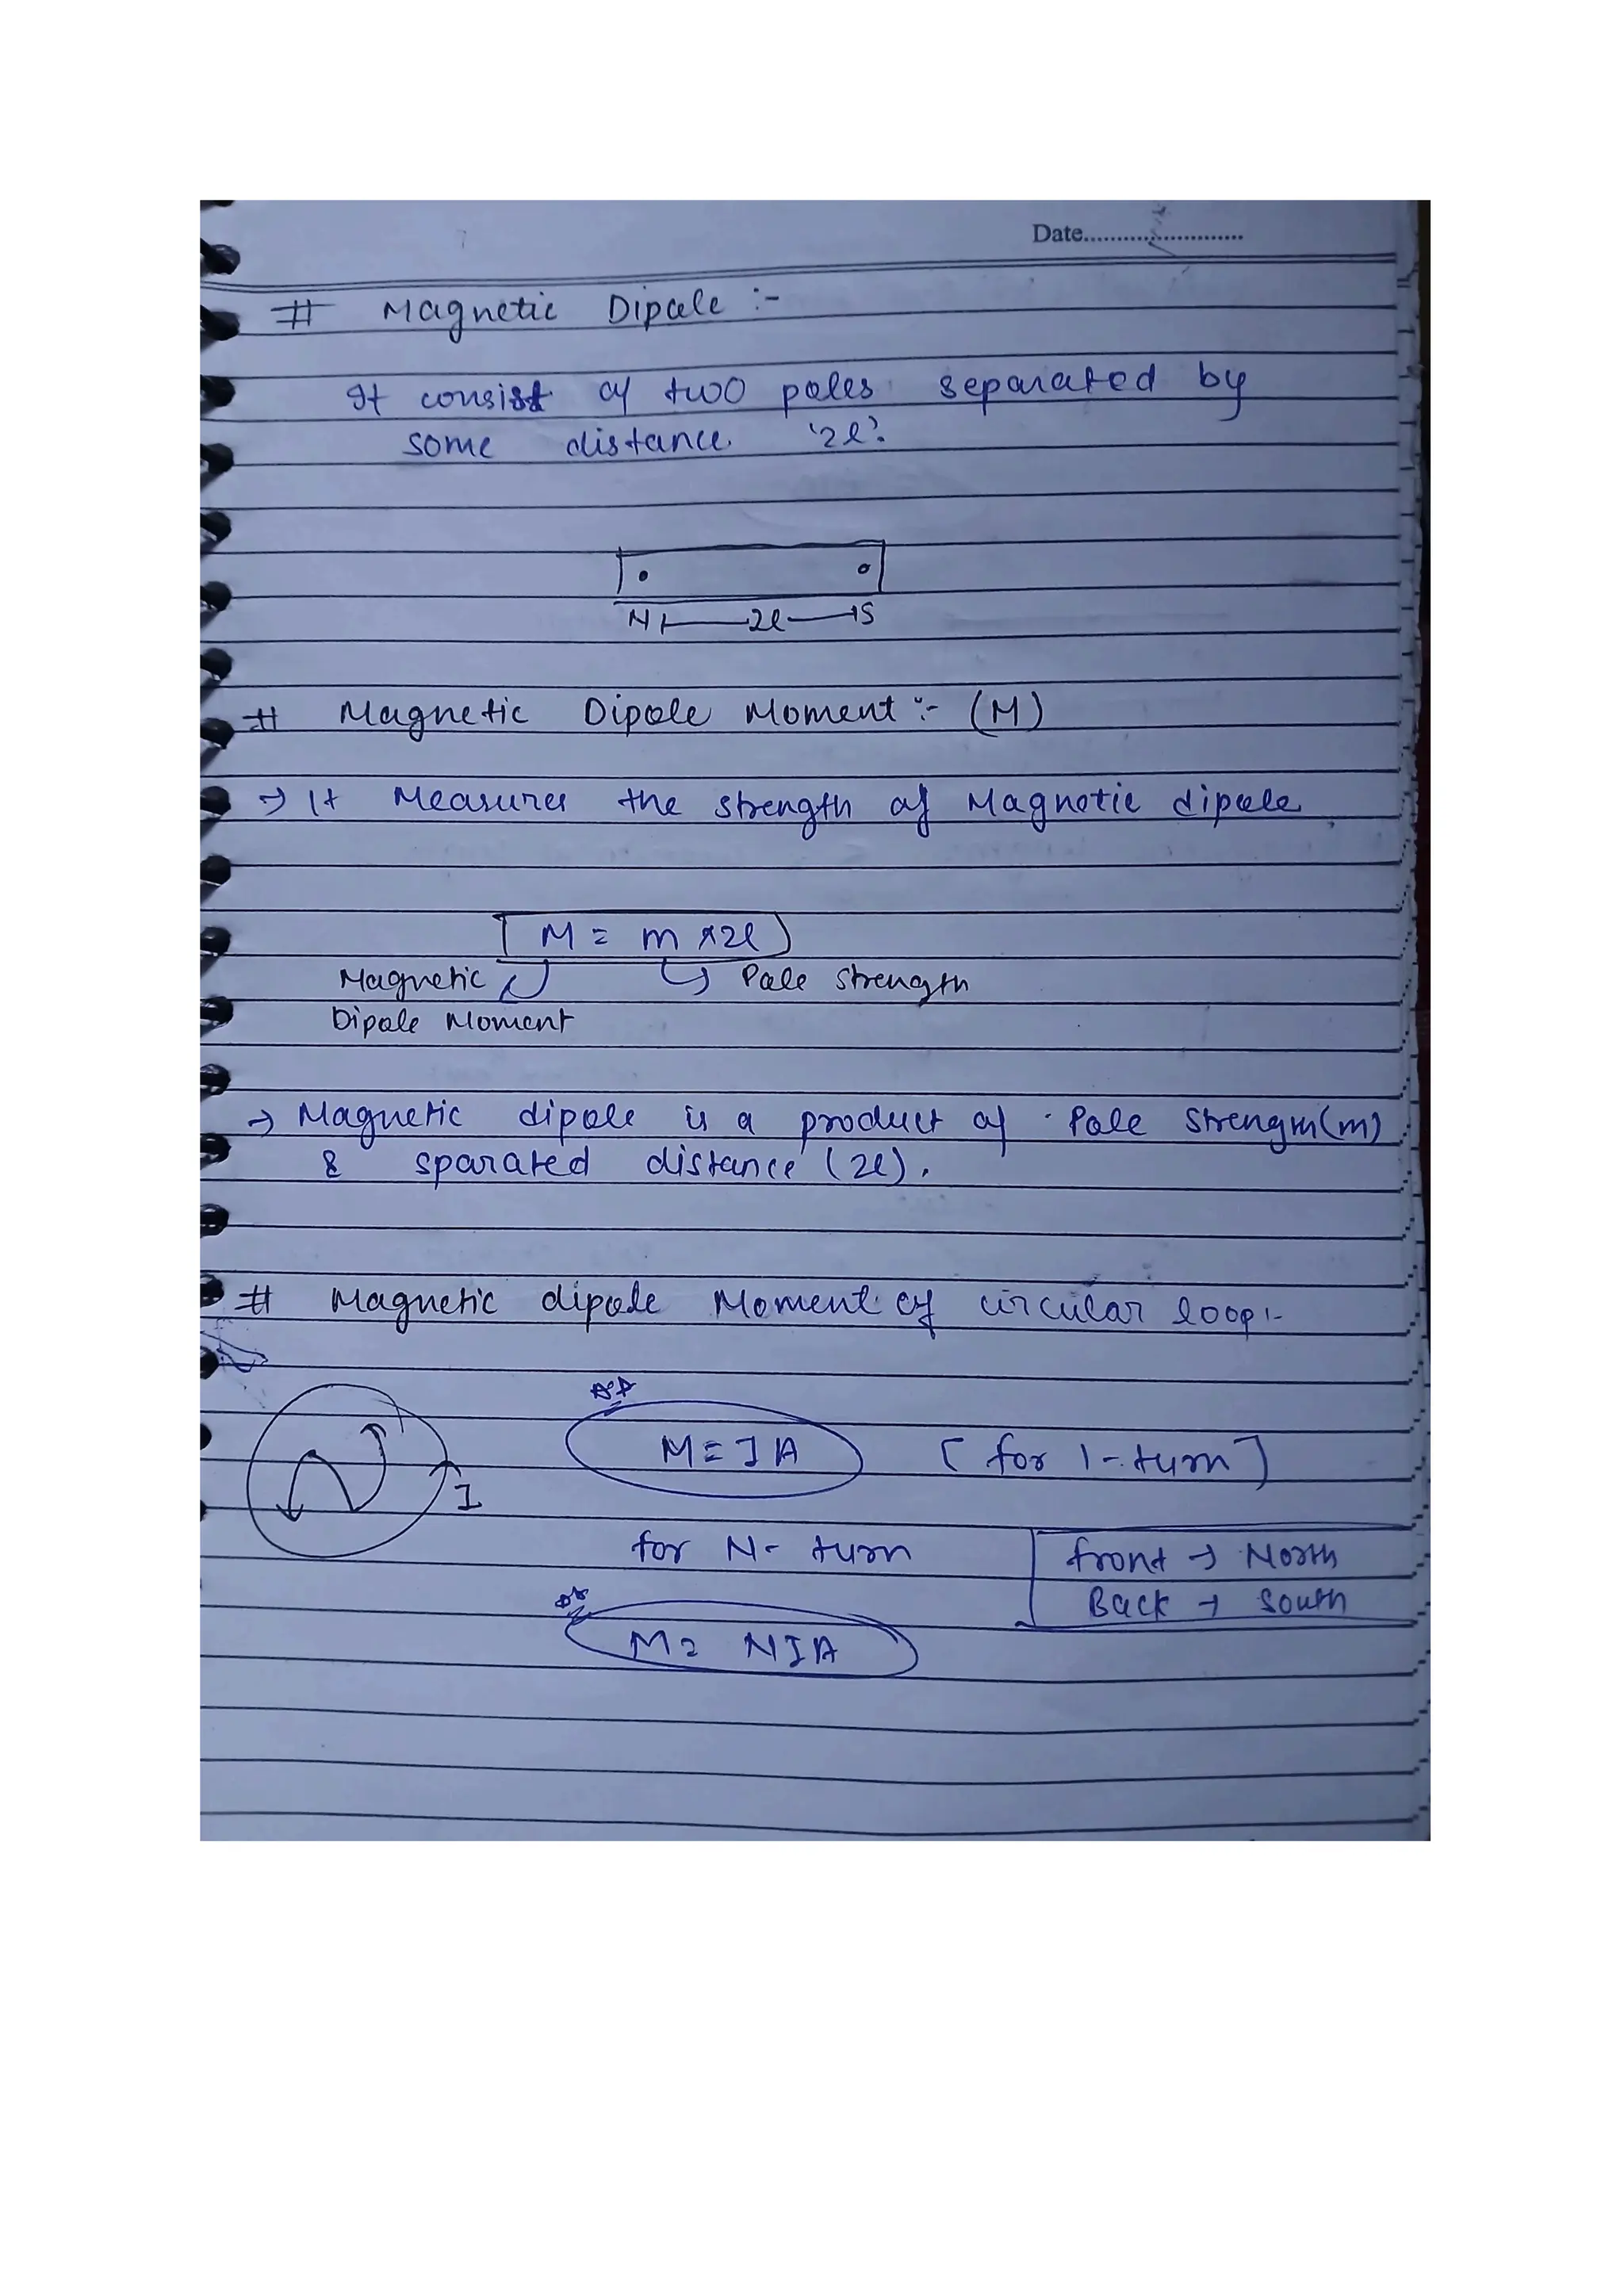 Date........................
# Magnetic Dipole :-
It consist of two poles separated by
some distance '2l'.
N 2l S
# Magnetic Dipole Moment :- (M)
→ It Measures the strength of Magnetic dipole
M = m x 2l
Magnetic Pole Strength
Dipole Moment
→ Magnetic dipole is a product of Pole Strength (m)
& sparated distance (2l).
# Magnetic dipole Moment of circular loop :-
M = IA [for 1-turn]
I
for N- turn front → North
Back → South
M = NIA